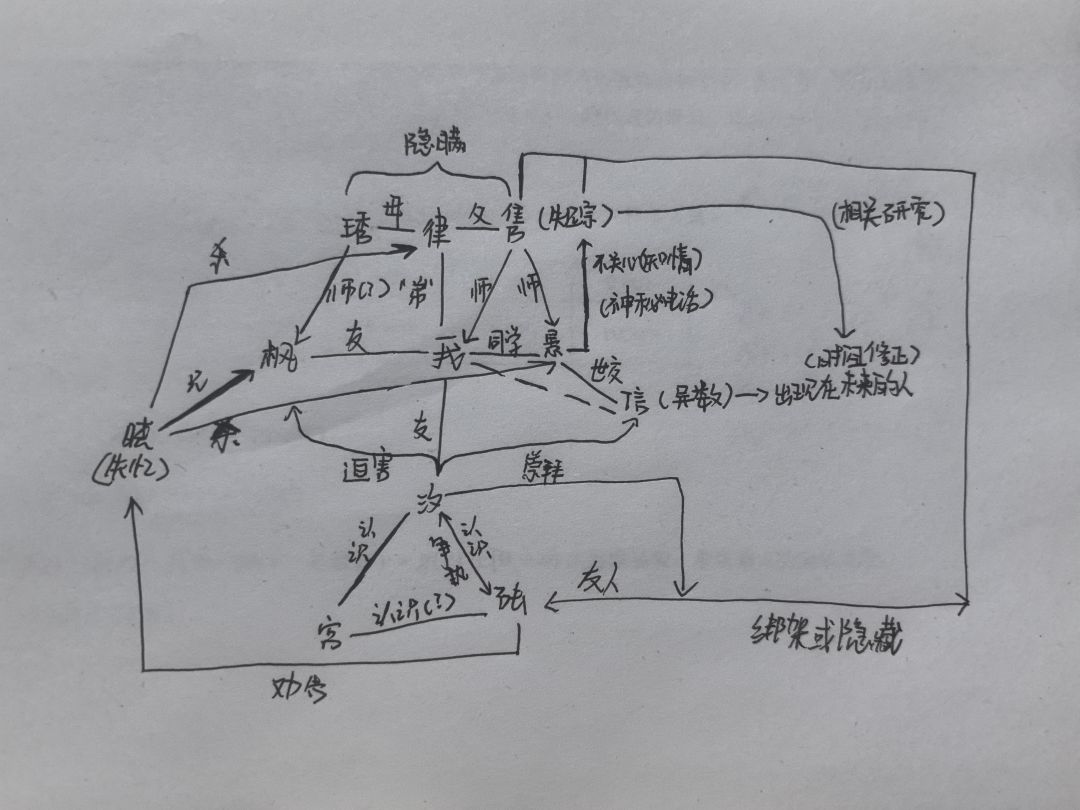 隐瞒
琇 母 律 父 售 (失踪)
(相关研究)
杀
师(?) "弟" 师 师
不关心(知情)
(神秘电话)
枫 友 我 同学 景
(时间修正)
兄
世交
信 (异数) → 出现在未来的人
杀
晓
(失忆)
友
迫害
崇拜
汐
认识
认识
争执
友人
宫 认识(?)
绑架或隐藏
劝告